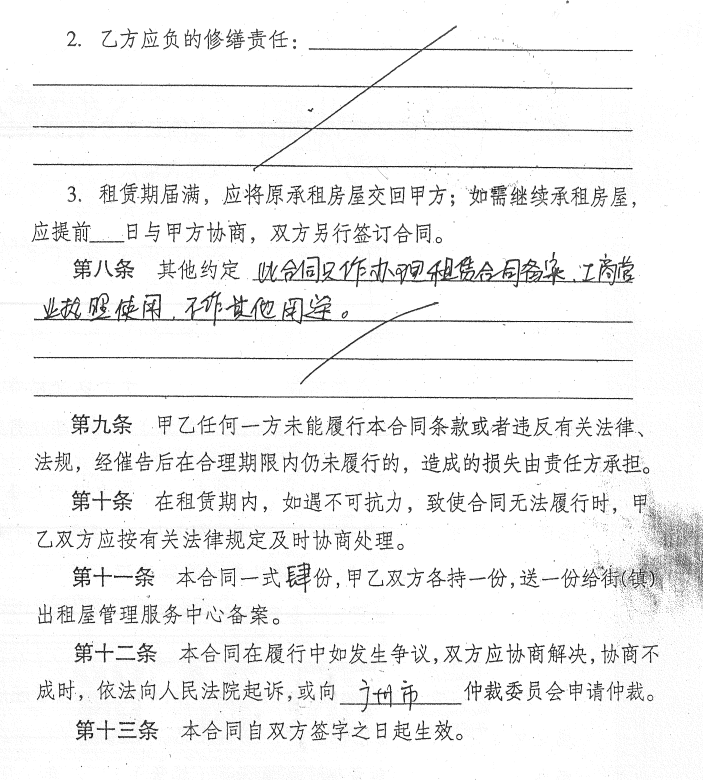 2. 乙方应负的修缮责任：
3. 租赁期届满，应将原承租房屋交回甲方；如需继续承租房屋，
应提前___日与甲方协商，双方另行签订合同。
第八条 其他约定 此合同只作办理租赁合同备案、工商营
业执照使用，不作其他用途。
第九条 甲乙任何一方未能履行本合同条款或者违反有关法律、
法规，经催告后在合理期限内仍未履行的，造成的损失由责任方承担。
第十条 在租赁期内，如遇不可抗力，致使合同无法履行时，甲
乙双方应按有关法律规定及时协商处理。
第十一条 本合同一式肆份，甲乙双方各持一份，送一份给街(镇)
出租屋管理服务中心备案。
第十二条 本合同在履行中如发生争议，双方应协商解决，协商不
成时，依法向人民法院起诉，或向 广州市 仲裁委员会申请仲裁。
第十三条 本合同自双方签字之日起生效。